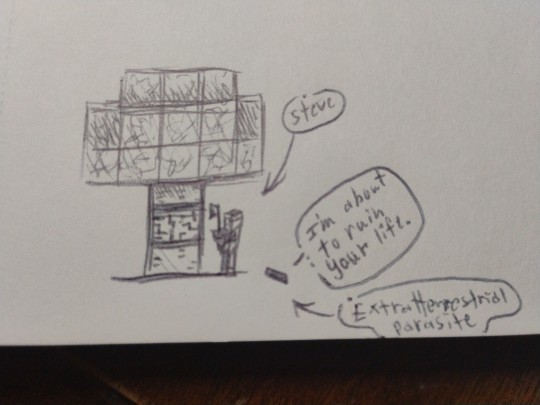 steve
I'm about
to ruin
your life.
Extraterrestrial
parasite